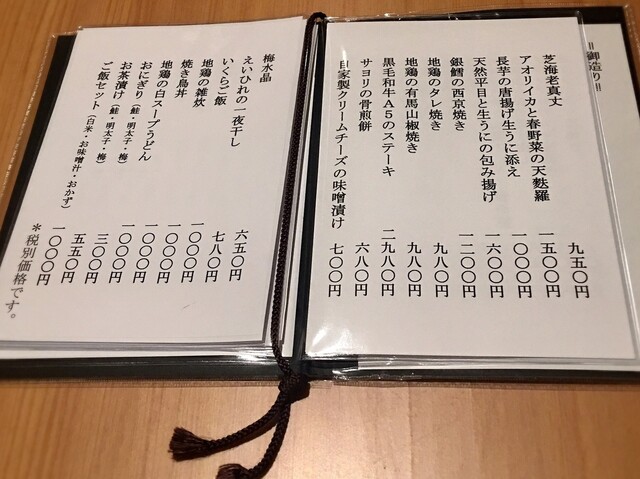 =御造り=
芝海老真丈 九五〇円
アオリイカと春野菜の天麩羅 一五〇〇円
長芋の唐揚げ生うに添え 一〇〇〇円
天然平目と生うにの包み揚げ 一六〇〇円
銀鱈の西京焼き 一二〇〇円
地鶏のタレ焼き 九八〇円
地鶏の有馬山椒焼き 九八〇円
黒毛和牛A5のステーキ 二九八〇円
サヨリの骨煎餅 六八〇円
自家製クリームチーズの味噌漬け 七〇〇円
梅水晶 六五〇円
えいひれの一夜干し 七八〇円
いくらご飯 一〇〇〇円
地鶏の雑炊 一〇〇〇円
焼き鳥丼 一〇〇〇円
地鶏の白スープうどん 一〇〇〇円
おにぎり(鮭・明太子・梅) 三〇〇円
お茶漬け(鮭・明太子・梅) 五五〇円
ご飯セット(白米・お味噌汁・おかず) 一〇〇〇円
*税別価格です。